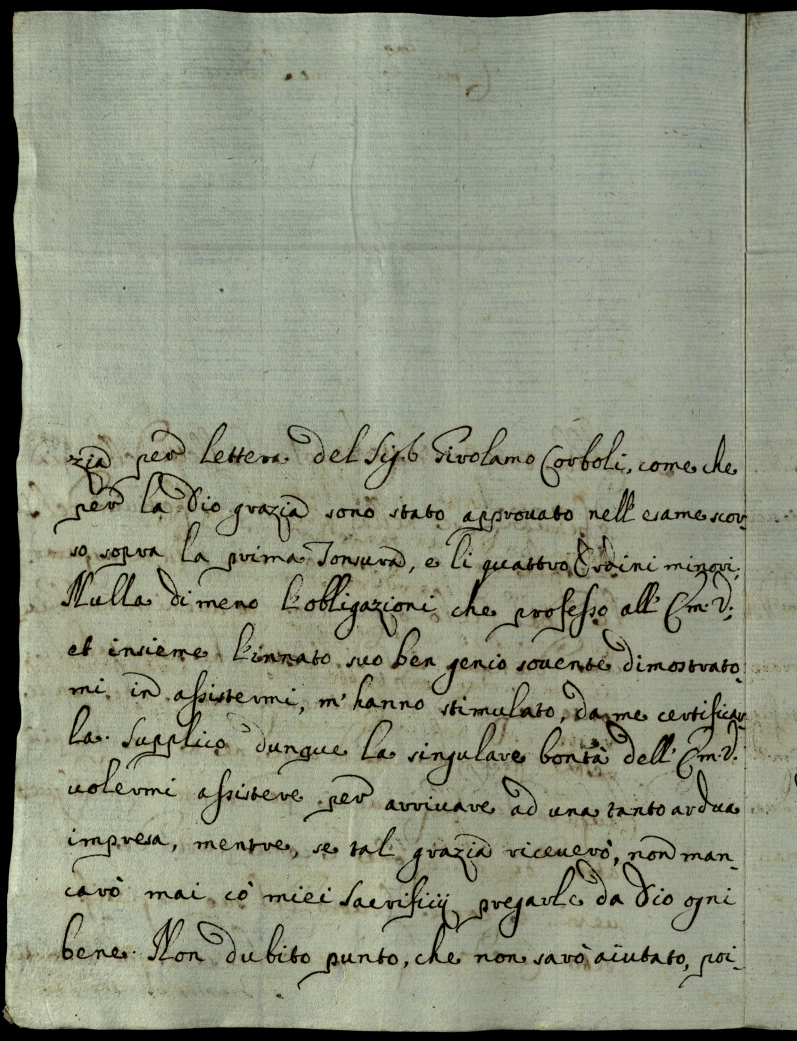 zia per lettera del Sig.r Girolamo Corboli, come che
per la Dio grazia sono stato approvato nell'esame scor-
so sopra la prima Tonsura, e li quattro Ordini minori.
Nulla di meno l'obligazioni che professo all' Em. V.
et insieme l'innato suo ben genio sovente dimostrato
mi in assistermi, m' hanno stimulato, da me certificar-
la. Supplico dunque la singulare bontà dell' Em. V.
volermi assistere per arrivare ad una tanto ardua
impresa, mentre, se tal grazia riceverò, non man-
carò mai có miei Sacrificij pregarle da Dio ogni
bene. Non dubito punto, che non sarò aiutato, poi-